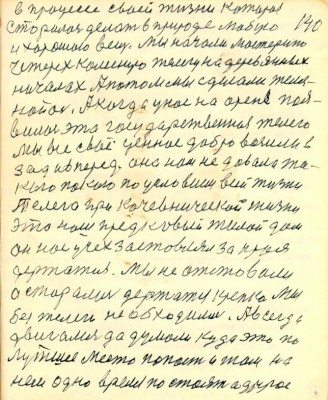 в процессе своей жизни которая
старался делать в природе много 140
и хорошого вещ. Мы начали мастерить
четерех колесную телегу на деревянных
началах А потом мы сделали желез-
ной. А когда у нас на появ-
вилась эта государственная телега
мы все своё ценное добро возили в
зад и вперед. она нам не довала та-
кого покою по условиям всей жизни
Телега при кочевнической жизни
это наш предковый жилой дом
он нас усех заставлял за
держатся. Мы не отставали
а старались держать крепко Мы
без телеги не обходились. А всегда
двигался да думали куда это по
лутшее место попаст и там на
нем одно время постоять а другое